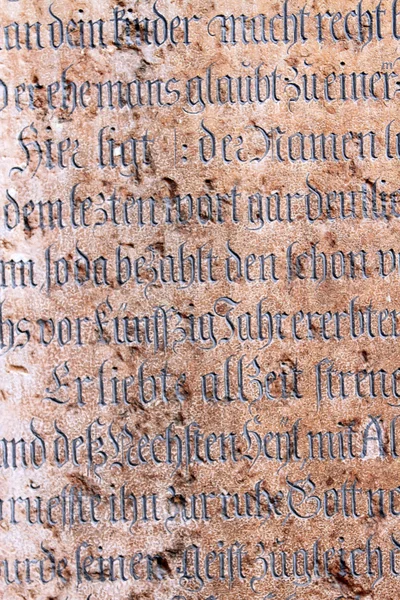 an dein kinder macht recht
der ehemans glaubt zu einer
Hier ligt : der Namen
dem lezten wort gar deutlic
am so da bezahlt den schon
hs vor Fünffzig Jahr ererbten
Er liebte allzeit stren
und deß Nechsten Heyl mit Al
rueffte ihn zur ruhe Gott
urde seinen Geist zugleich d